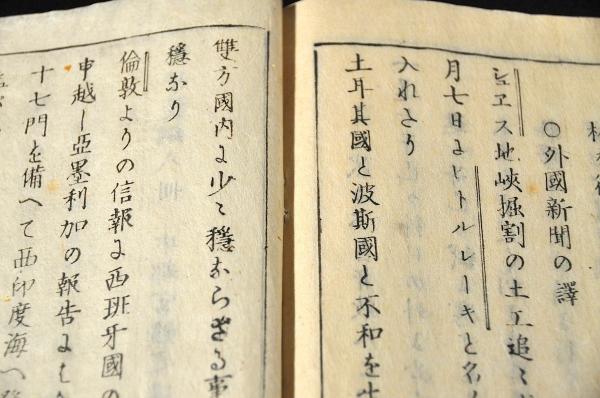 ○外國新聞の譯
シエス地峽掘割の土工追々
月七日よヒトルレーキと名
入れたり
土耳其國と波斯國と不和を
雙方國内よ少〻穩ならざる事
穩なり
倫敦よりの信報よ西班牙國の
申越し亞墨利加の報告よ
十七門を備へて西印度海へ